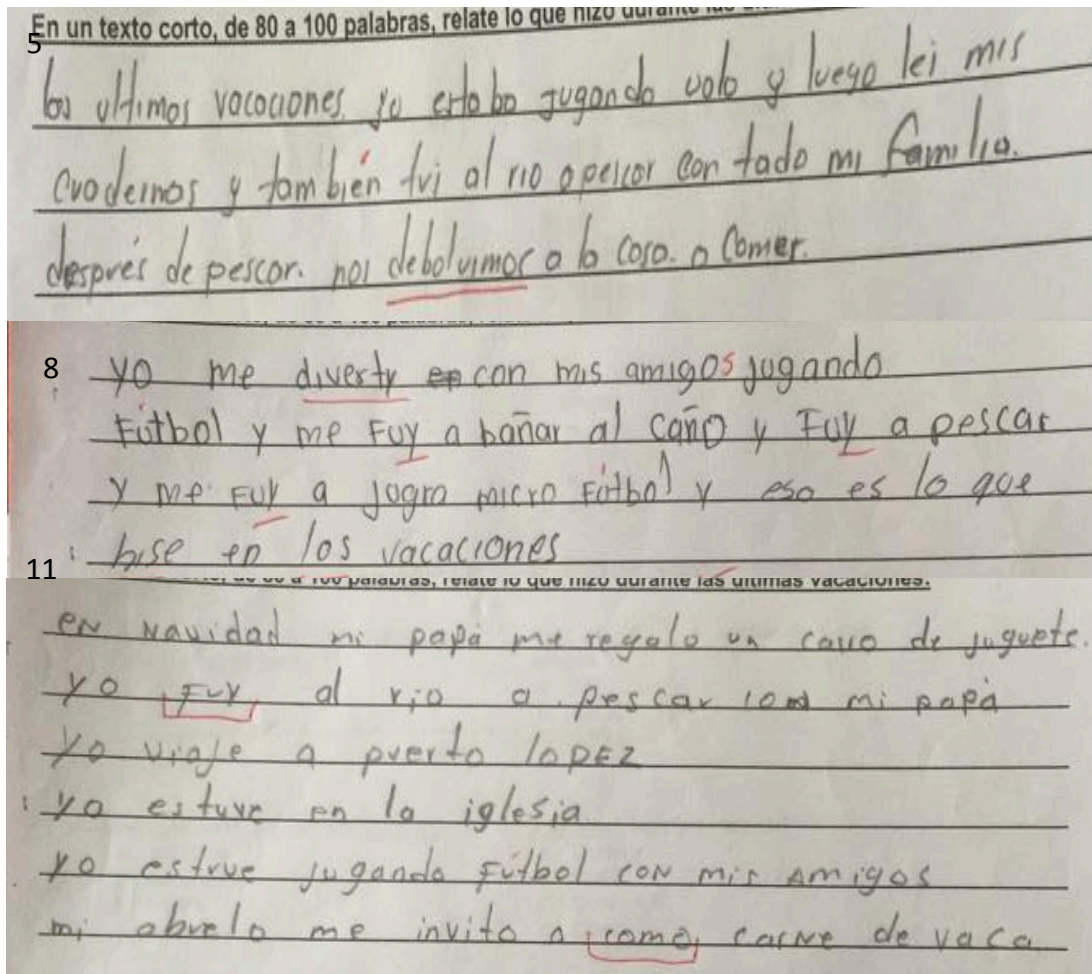 En un texto corto, de 80 a 100 palabras, relate lo que hizo durante las
5
las ultimas vacaciones. yo estaba jugando volo y luego lei mis
cuadernos y también fui al rio a pescar con toda mi familia.
después de pescar. nos debolvimos a la casa. a comer.
8
yo me diverty con mis amigos jugando
Fútbol y me Fuy a bañar al caño y Fuy a pescar
y me Fuy a jogra micro Fútbol y eso es lo que
hise en los vacaciones
11
a 100 palabras, relate lo que hizo durante las últimas vacaciones.
eN Navidad mi papá me regalo un carro de juguete.
yo Fuy al rio a pescar con mi papá
yo viaje a puerto lopez
yo estuve en la iglesia
yo estrue jugando Fútbol coN mis Amigos
mi abuelo me invito a come carne de vaca